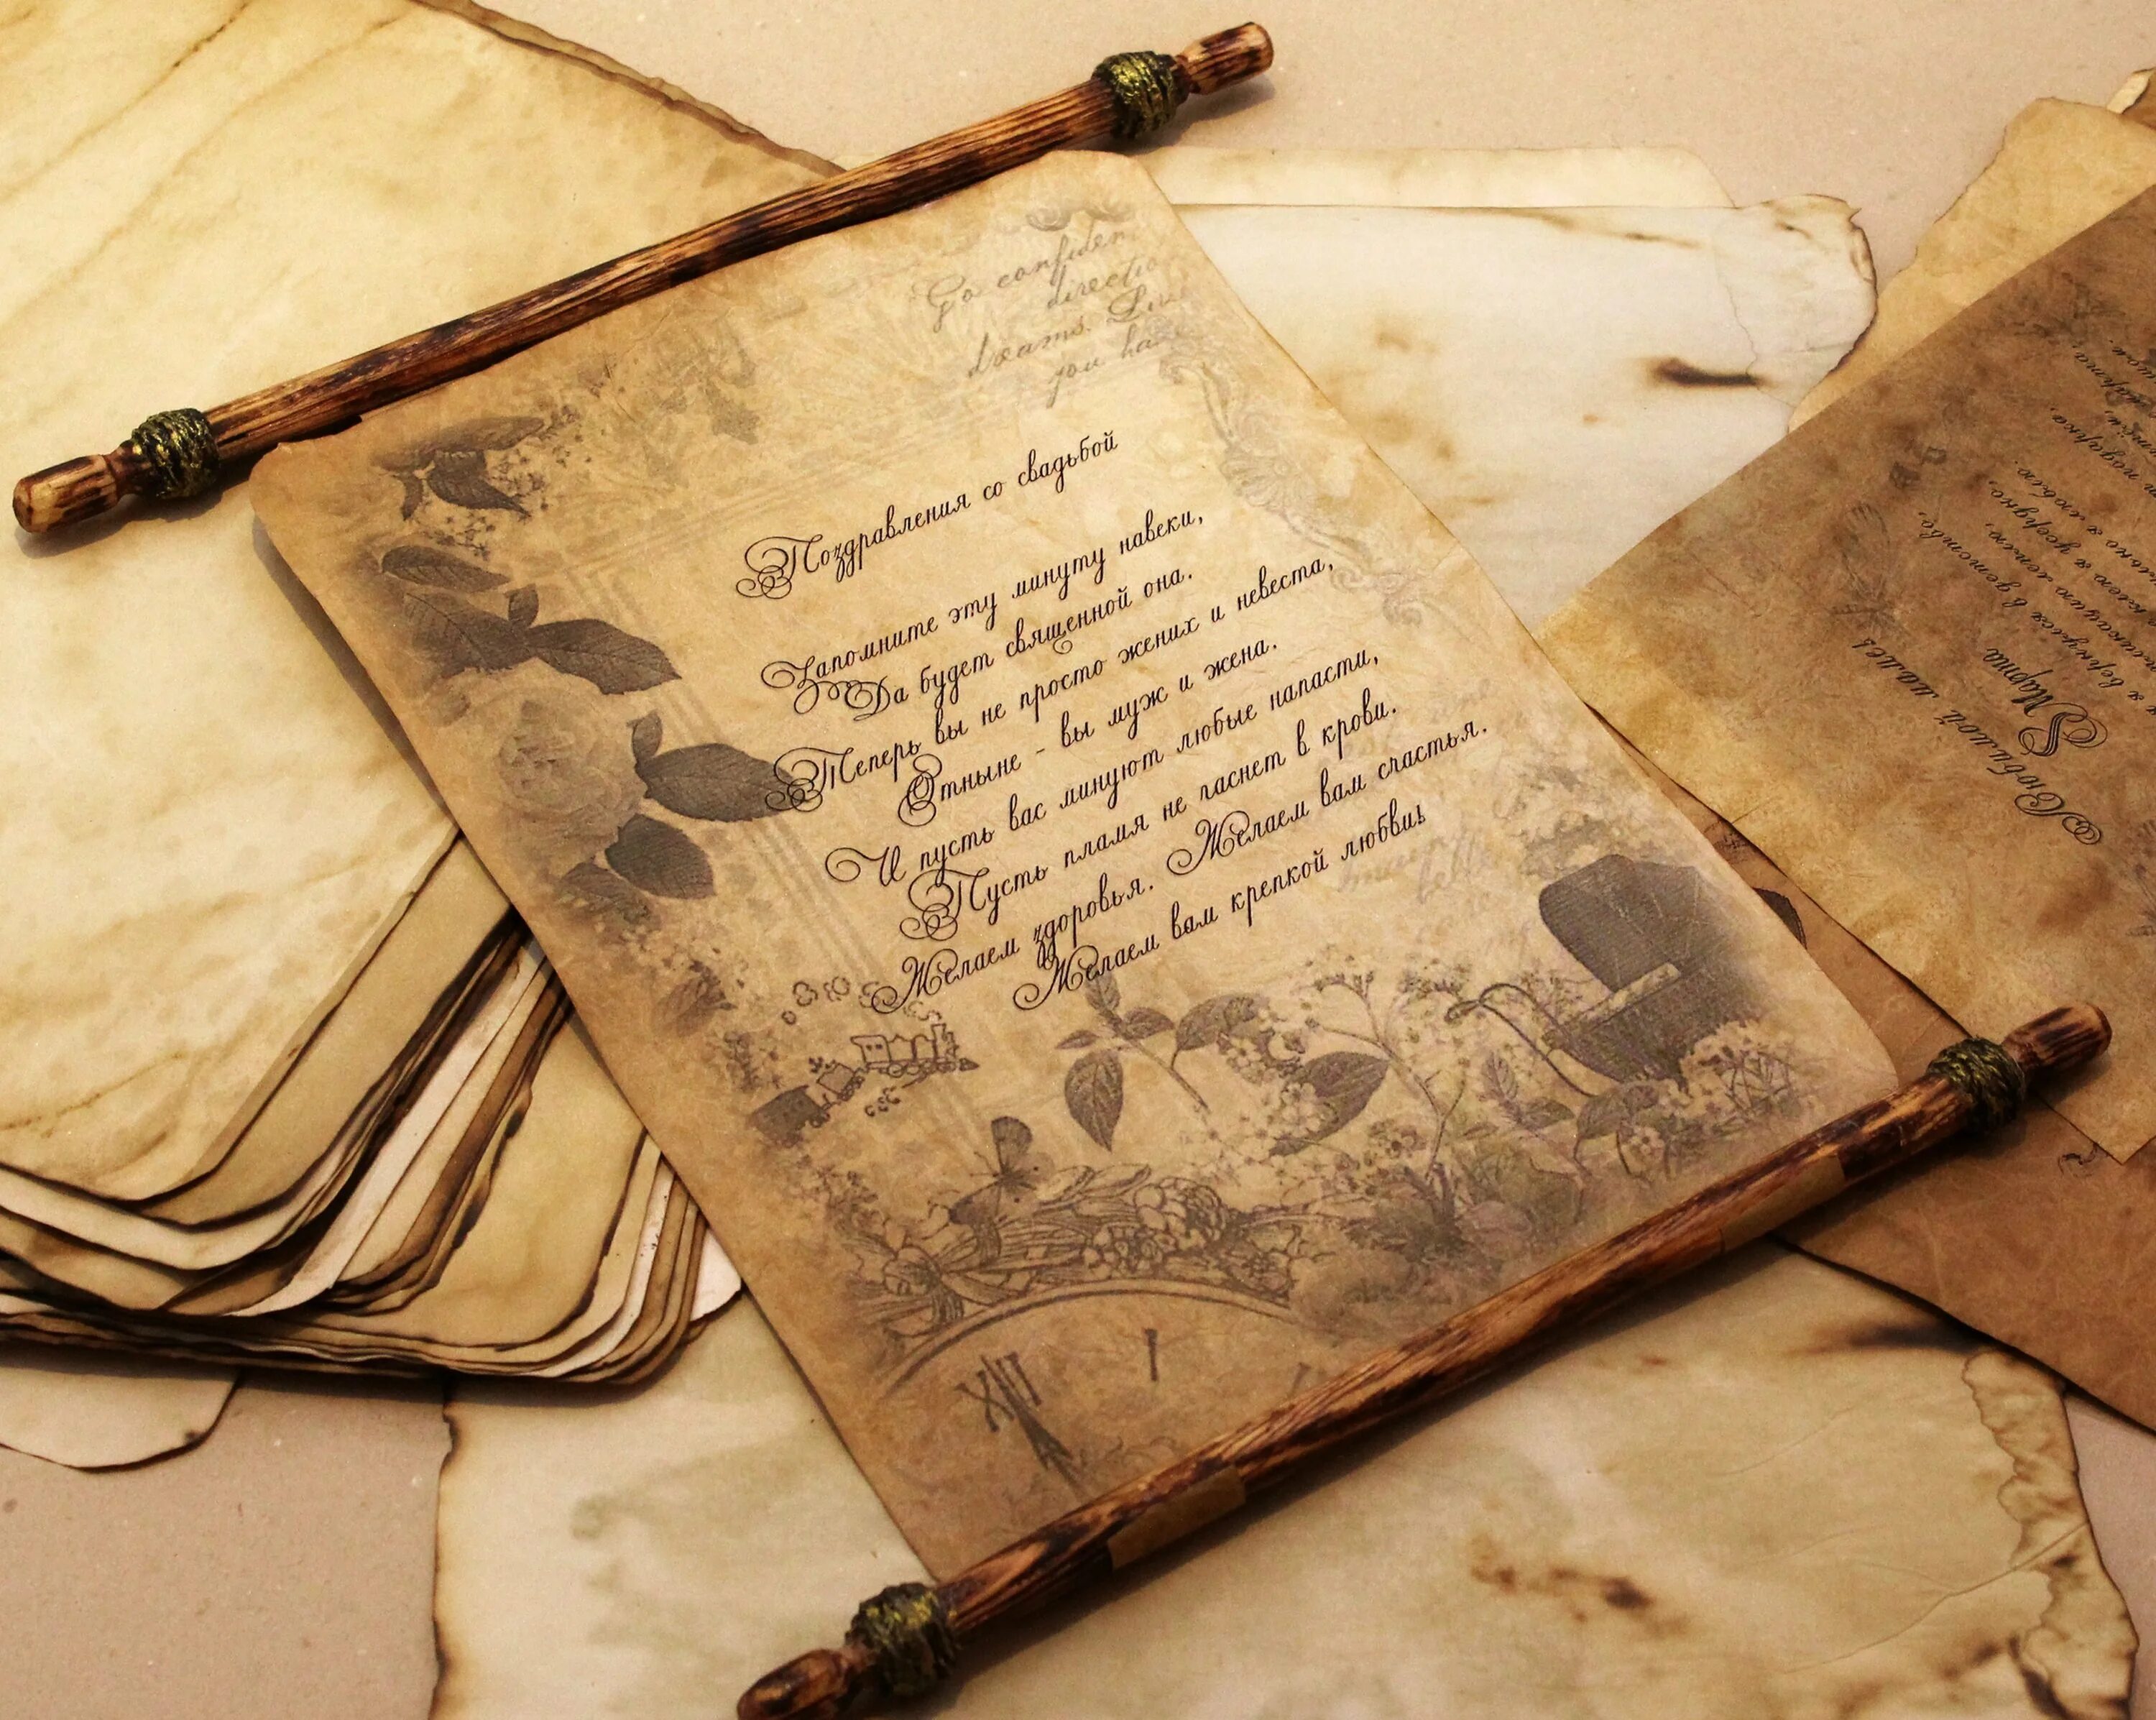 Go confiden
directio
dreams. Live
you ha
Поздравления со свадьбой
Запомните эту минуту навеки,
Да будет священной она.
Теперь вы не просто жених и невеста,
Отныне - вы муж и жена.
И пусть вас минуют любые напасти,
Пусть пламя не гаснет в крови.
Желаем здоровья. Желаем вам счастья.
Желаем вам крепкой любви!
XII I
Любимой маме!
8 Марта
я вернуся в детство,